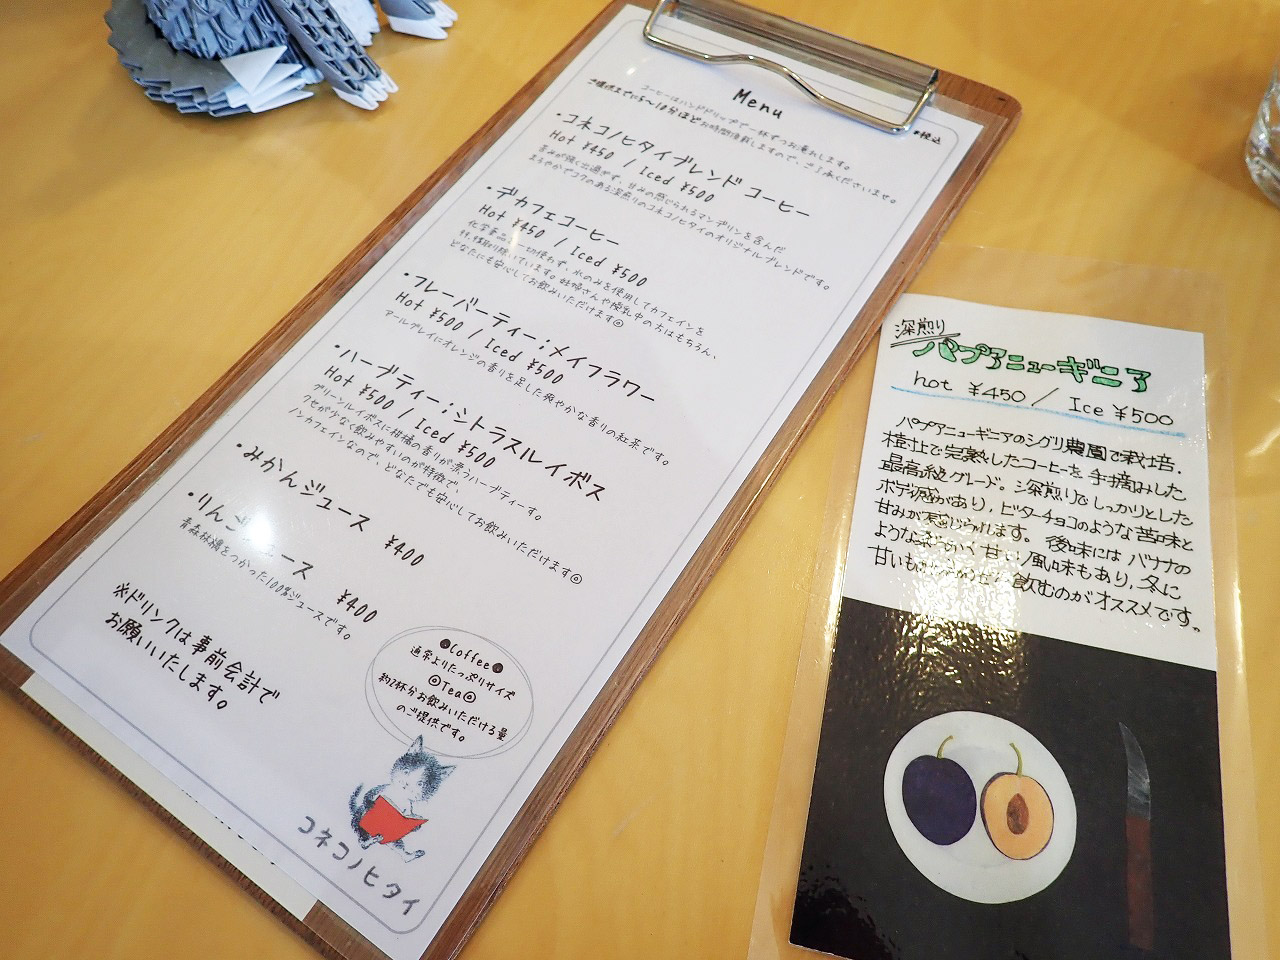 Menu
※税込
コーヒーはハンドドリップで一杯ずつお淹れします。
ご提供までに5〜10分ほどお時間頂戴しますので、ご了承くださいませ。
・コネコノヒタイブレンドコーヒー
Hot ¥450 / Iced ¥500
苦みが強く出過ぎず、甘みの感じられるマンデリンを含んだ
まろやかでコクのある深煎りのコネコノヒタイのオリジナルブレンドです。
・デカフェコーヒー
Hot ¥450 / Iced ¥500
化学薬品を一切使わず、水のみを使用してカフェインを
取り除いています。妊婦さんや授乳中の方はもちろん、
どなたにも安心してお飲みいただけます◎
・フレーバーティー:メイフラワー
Hot ¥500 / Iced ¥500
アールグレイにオレンジの香りを足した爽やかな香りの紅茶です。
・ハーブティー:シトラスルイボス
Hot ¥500 / Iced ¥500
グリーンルイボスに柑橘の香りが漂うハーブティーす。
クセが少なく飲みやすいのが特徴で、
ノンカフェインなので、どなたでも安心してお飲みいただけます◎
・みかんジュース ¥400
・りんごジュース ¥400
青森林檎をつかった100%ジュースです。
※ドリンクは事前会計で
お願いいたします。
●Coffee●
通常よりたっぷりサイズ
◎Tea◎
約2杯分お飲みいただける量
のご提供です。
コネコノヒタイ
深煎り
パプアニューギニア
hot ¥450 / Ice ¥500
パプアニューギニアのシグリ農園で栽培.
樹上で完熟したコーヒーを手摘みした
最高級グレード。深煎りでしっかりとした
ボディ感があり,ビターチョコのような苦味と
甘みが感じられます。後味にはバナナの
ような 甘い風味もあり,冬に
甘いもの 飲むのがオススメです。